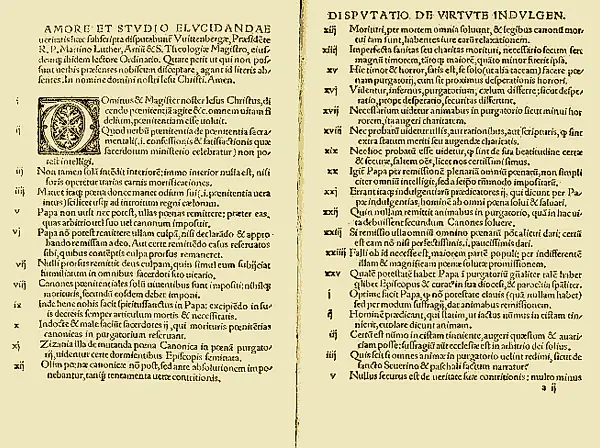 AMORE ET STVDIO ELVCIDANDAE
ueritatis hæc subscripta disputabunť Vuittenbergæ, Præsidēte
R. P. Martino Luther, Artiū & S. Theologiæ Magistro, eius-
dem ibidem lectore Ordinario. Quare petit ut qui non pos-
sunt uerbis præsentes nobiscum disceptare, agant id literis ab-
sentes. In nomine domini nostri Iesu Christi. Amen.
i Dominus & Magister noster Iesus Christus, di-
cendo pœnitentiā agite &c. omnem uitam fi-
delium, pœnitentiam esse uoluit.
ij Quod uerbū pœnitentia de pœnitentia sacra-
mentali (.i. confessionis & satisfactionis quæ
sacerdotum ministerio celebratur) non po-
test intelligi.
iij Non tamen solā intēdit interiorē: immo interior nulla est, nisi
foris operetur uarias carnis mortificationes.
iiij Manet itaque pœna donec manet odium sui (.i. pœnitentia uera
intus) scilicet usque ad introitum regni cælorum.
v Papa non uult nec potest, ullas pœnas remittere: præter eas,
quas arbitrio uel suo uel canonum imposuit.
vj Papa nō potest remittere ullam culpā, nisi declarādo & appro-
bando remissam a deo. Aut certe remittēdo casus reseruatos
sibi, quibus contēptis culpa prorsus remaneret.
vij Nulli prorsus remittit deus culpam, quin simul eum subijciat
humiliatum in omnibus sacerdoti suo uicario.
viij Canones pœnitentiales solū uiuentibus sunt impositi: nihilque
morituris, secundū eosdem debet imponi.
ix Inde bene nobis facit spiritussanctus in Papa: excipiēdo in su-
is decretis semper articulum mortis & necessitatis.
x Indocte & male faciūt sacerdotes ij, qui morituris pœnitētias
canonicas in purgatorium reseruant.
xj Zizania illa de mutanda pœna Canonica in pœnā purgato-
rij, uidentur certe dormientibus Episcopis seminata.
xij Olim pœnæ canonicæ nō post, sed ante absolutionem impo-
nebantur, tanquam tentamenta ueræ contritionis.
DISPVTATIO DE VIRTVTE INDVLGEN.
xiij Morituri, per mortem omnia soluunt, & legibus canonū mor-
tui iam sunt, habentes iure earū relaxationem.
xiiij Imperfecta sanitas seu charitas morituri, necessario secum fert
magnū timorem, tātoque maiorē, quāto minor fuerit ipsa.
xv Hic timor & horror, satis est, se solo (ut alia taceam) facere pœ-
nam purgatorij, cum sit proximus desperationis horrori.
xvj Videntur, infernus, purgatorium, cælum differre: sicut despe-
ratio, prope desperatio, securitas differunt.
xvij Necessarium uidetur animabus in purgatorio sicut minui hor-
rorem, ita augeri charitatem.
xviij Nec probatū uidetur ullis, aut rationibus, aut scripturis, q̄ sint
extra statum meriti seu augendæ charitatis.
xix Nec hoc probatū esse uidetur, q̄ sint de sua beatitudine certæ
& securæ, saltem oēs, licet nos certissimi simus.
xx Igitur Papa per remissionē plenariā omniū pœnarū, non simpli
citer omniū intelligit, sed a seipso tm̄modo impositarū.
xxj Errant itaque indulgentiarū prædicatores ij, qui dicunt per Pa-
pæ indulgentias, hominē ab omni pœna solui & saluari.
xxij Quin nullam remittit animabus in purgatorio, quā in hac ui-
ta debuissent secundum Canones soluere.
xxiij Si remissio ulla omniū omnino pœnarū pōt alicui dari; certū
est eam nō nisi perfectissimis, .i. paucissimis dari.
xxiiij Falli ob id necesse est, maiorem partē populi: per indifferentē
illam & magnificam pœnæ solutæ promissionem.
xxv Qualē potestatē habet Papa ī purgatoriū gñaliter talē habet
quilibet Episcopus & curatus in sua diocesi, & parochia spāliter.
i Optime facit Papa, q̄ nō potestate clauis (quā nullam habet)
sed per modum suffragij, dat animabus remissionem.
ij Hominē prædicant, qui statim, ut iactus nūmus in cistam tin-
nierit, euolare dicunt animam.
iij Certū est nūmo in cistam tinniente, augeri quæstum & auari-
tiam posse: suffragiū aūt ecclesiæ est in arbitrio dei solius.
iiij Quis scit si omnes animæ in purgatorio uelint redimi, sicut de
sancto Seuerino & paschali factum narratur.
v Nullus securus est de ueritate suæ contritionis: multo minus
a ij